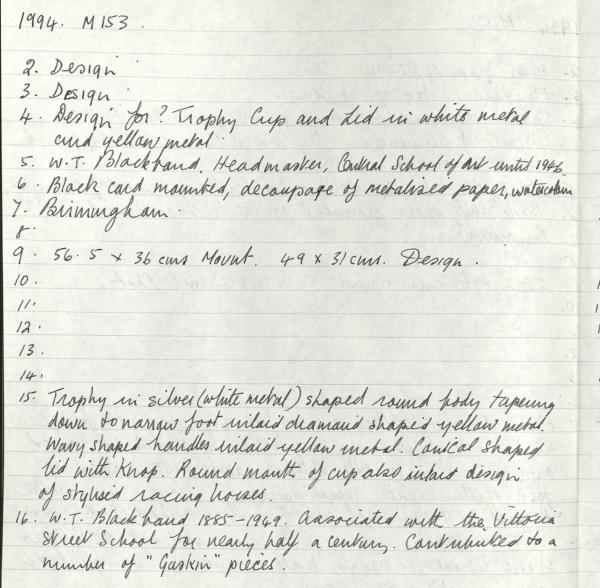 1994. M153.
2. Design
3. Design
4. Design for? Trophy Cup and Lid in white metal
and yellow metal.
5. W.T. Blackband, Headmaster, Central School of Art until 1946.
6. Black card mounted, decoupage of metalised paper, watercolour
7. Birmingham.
8.
9. 56.5 x 36 cms Mount. 49 x 31 cms. Design.
10.
11.
12.
13.
14.
15. Trophy in silver (white metal) shaped round body tapering
down to narrow foot inlaid diamond shaped yellow metal.
Wavy shaped handles inlaid yellow metal. Conical shaped
lid with Knop. Round mouth of cup also inlaid design
of stylised racing horses.
16. W.T. Blackband 1885-1949. Associated with the Vittoria
Street School for nearly half a century. Contributed to a
number of "Gaskin" pieces.